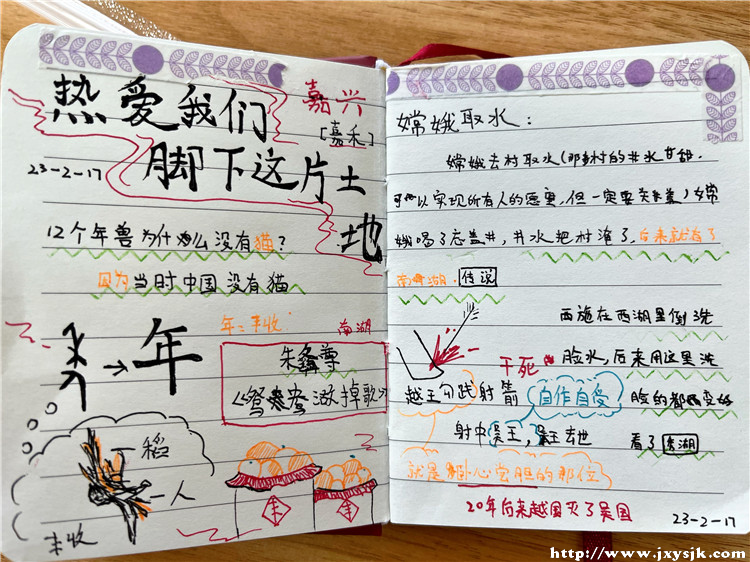 热爱我们
脚下这片土
地
嘉兴
[嘉禾]
23-2-17
12个年兽为什么没有猫?
因为当时中国没有猫
年=丰收
→年
南湖
朱彝尊
《鸳鸯湖棹歌》
稻
人
丰收
嫦娥取水:
嫦娥去村取水(那村的井水甘甜,
可以实现所有人的愿望,但一定要关盖)嫦
娥喝了忘盖井,井水把村淹了,后来就有了
南湖·传说
西施在西湖里倒洗
脸水,后来用这里洗
脸的都变好
看了西湖
干死
越王勾践射箭
自作自受
射中吴王,吴王去世
就是卧心尝胆的那位
20年后来越国灭了吴国
23-2-17
http://www.jxysjk.com